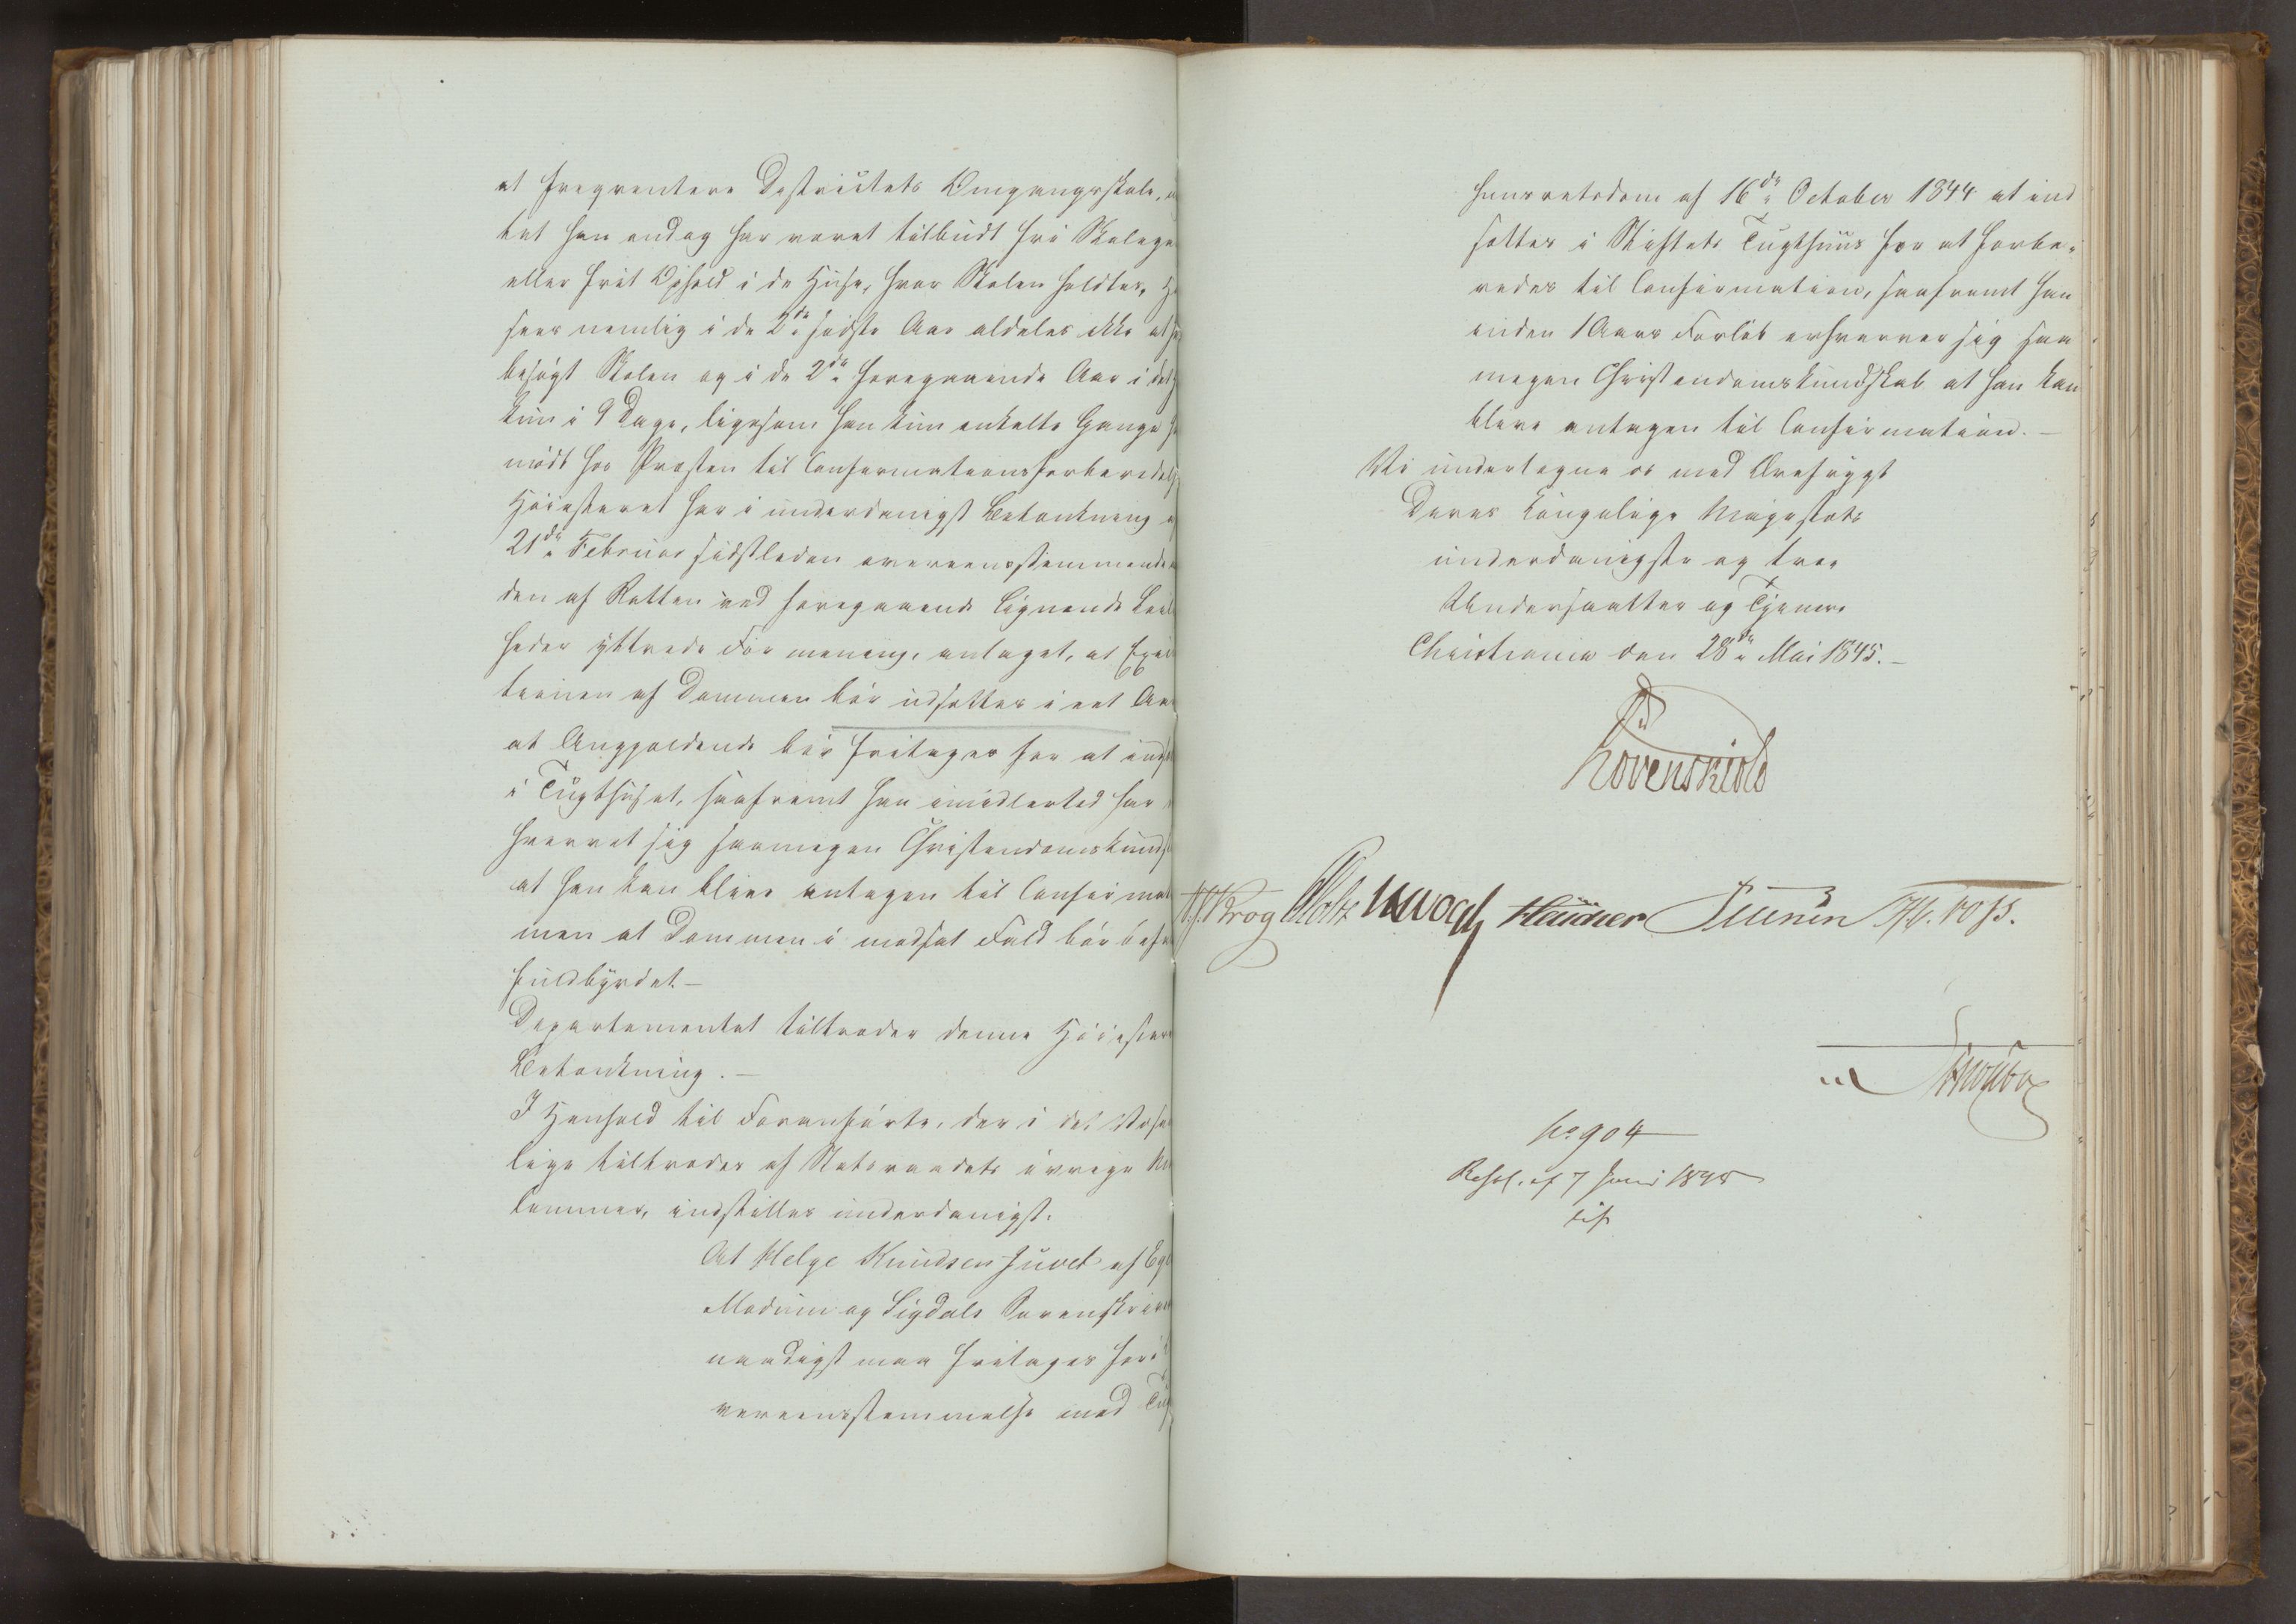 at freqventere Districtets Omgangsskole,
tet han endog har været tilbudt fri Skolegang
eller frit Ophold i de Huse, hvor Skolen holdtes,
sees nemlig i de 2de sidste Aar aldeles ikke at
besøgt Skolen og i de 2de foregaaende Aar i det
kun i 9 Dage, ligesom han kun enkelte Gange
mødt hos Præsten til Confirmationsforberedelse
Høiesteret har i underdanigst Betænkning
21de Februar sidstleden overeensstemmende
den af Retten ved foregaaende lignende Leilig
heder yttrede Formening, antaget, at Execu
tionen af Dommen bør udsættes i eet Aar
at Angjældende bør fritages for at
i Tugthuset, saafremt han imidlertid har
hvervet sig saamegen Christendomskundsk
at han kan blive antagen til Confirmat
men at Dommen i modsat Fald bør
fuldbyrdet.—
Departementet tiltræder denne Høiesteret
Betænkning.—
I Henhold til Foranførte, der i det Væsent
lige tiltrædes af Statsraadets øvrige Med
lemmer, indstilles underdanigst:
At Helge Knudsen Juvet af
Modum og Sigdals Sorenskriv
naadigst maa fritages for i
vereensstemmelse med
huusretsdom af 16de October 1844 at ind
sættes i Stiftets Tugthuus for at forbe-
redes til Confirmation, saafremt han
inden 1 Aars Forløb erhverver sig saa
megen Christendomskundskab at han kan
blive antagen til Confirmation.—
Vi undertegne os med Ærefrygt
Deres Kongelige Majestæts
underdanigste og troe
Undersaatter og Tjenere
Christiania den 28de Mai 1845.—
Løvenskiold
Krog Holst Vogt
No 904
Resol. af 7 Juni 1845